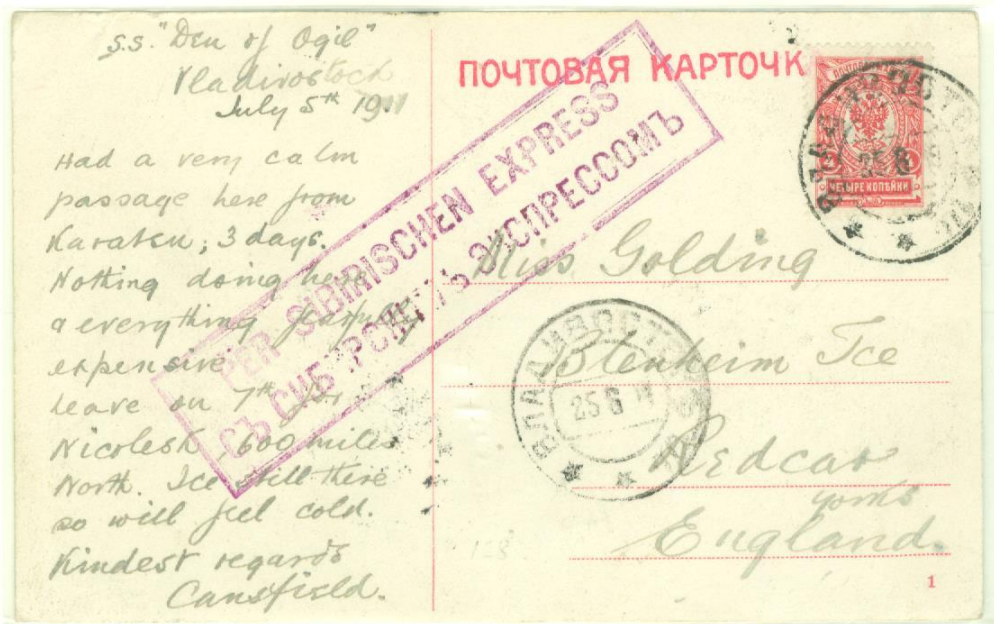 s.s. "Den of Ogil"
Vladivostock
July 5th 1911
Had a very calm
passage here from
Karatsu; 3 days.
Nothing doing here
& everything fearfully
expensive
Leave on 7th for
Nicolesk, 600 miles
North. Ice still there
so will feel cold.
Kindest regards
Cansfield.
ПОЧТОВАЯ КАРТОЧК
PER SIBIRISCHEN EXPRESS
СЪ СИБИРСКИМЪ ЭКСПРЕССОМЪ
ЧЕТЫРЕ КОПѢЙКИ
25 6
Miss Golding
ВЛАДИВОСТОКЪ
25 6 11
Blenheim Tce
Redcar
Yorks
England.
128
1